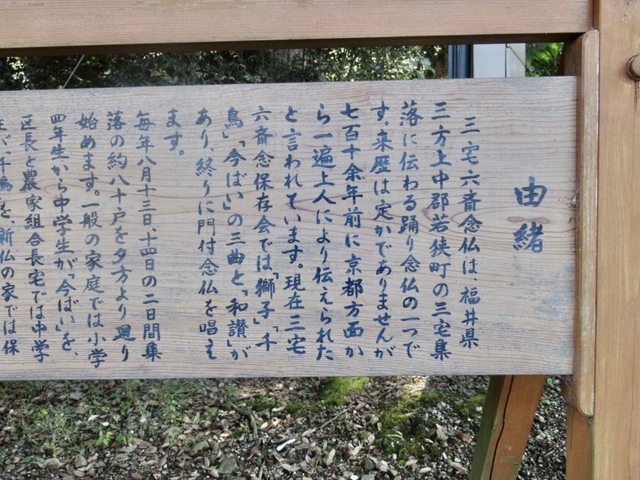 由緒
三宅六斎念仏は、福井県
三方上中郡若狭町の三宅集
落に伝わる踊り念仏の一つで
す。来歴は定かでありませんが
七百十余年前に京都方面か
ら一遍上人により伝えられた
と言われています。現在三宅
六斎念保存会では「獅子」「千
鳥」「今ばい」の三曲と、「和讃」が
あり、終りに門付念仏を唱え
ます。
毎年八月十三日、十四日の二日間集
落の約八十戸を夕方より廻り
始めます。一般の家庭では小学
四年生から中学生が「今ばい」を、
区長と農家組合長宅では中学
生が千鳥を、新仏の家では保